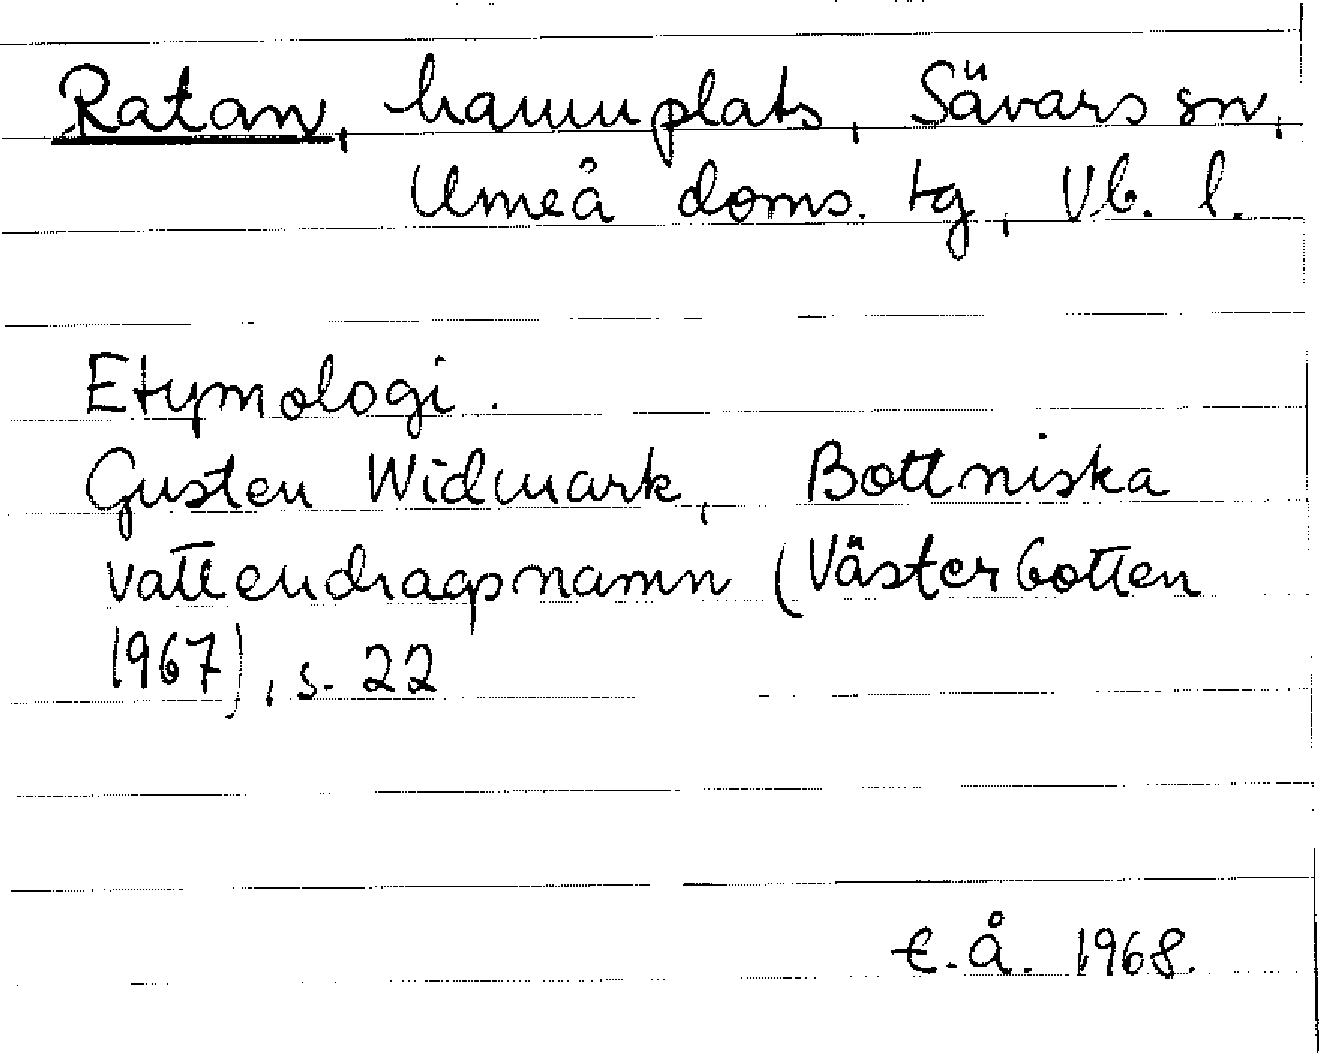 Ratan, hamnplats, Sävars sn,
Umeå doms. tg, Vb. l.
Etymologi.
Gusten Widmark, Bottniska
vattendragsnamn (Västerbotten
1967), s. 22
E.Å. 1968.